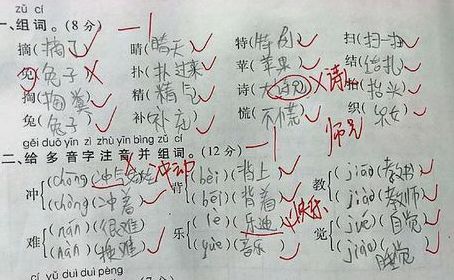 zǔ cí
一、组词。(8 分) 一1
摘(摘了) 晴(晴天) 特(特别) 扫(扫一扫)
兔(兔子) 扑(扑过来) 苹(苹果) 结(结扎)
掏(掏拳) 精(精占) 诗(大诗兄) 诗 抬(抬头)
兔(兔子) 补(补充) 慌(不慌) 师兄 织(织女)
gěi duō yīn zì zhù yīn bìng zǔ cí
二、给多音字注音并组词。(12 分) 一1
冲 (chōng)(冲) 冲动 背 (bēi)(背上) 教 (jiāo)(教书)
(chòng)(冲着) (bèi)(背着) (jiào)(教师)
难 (nán)(很难) 乐 (lè)(乐迪) 快乐 觉 (jué)(自觉)
(nán)(挽难) (yuè)(音乐) (jiào)(睡觉)
cí yǔ duì duì pèng